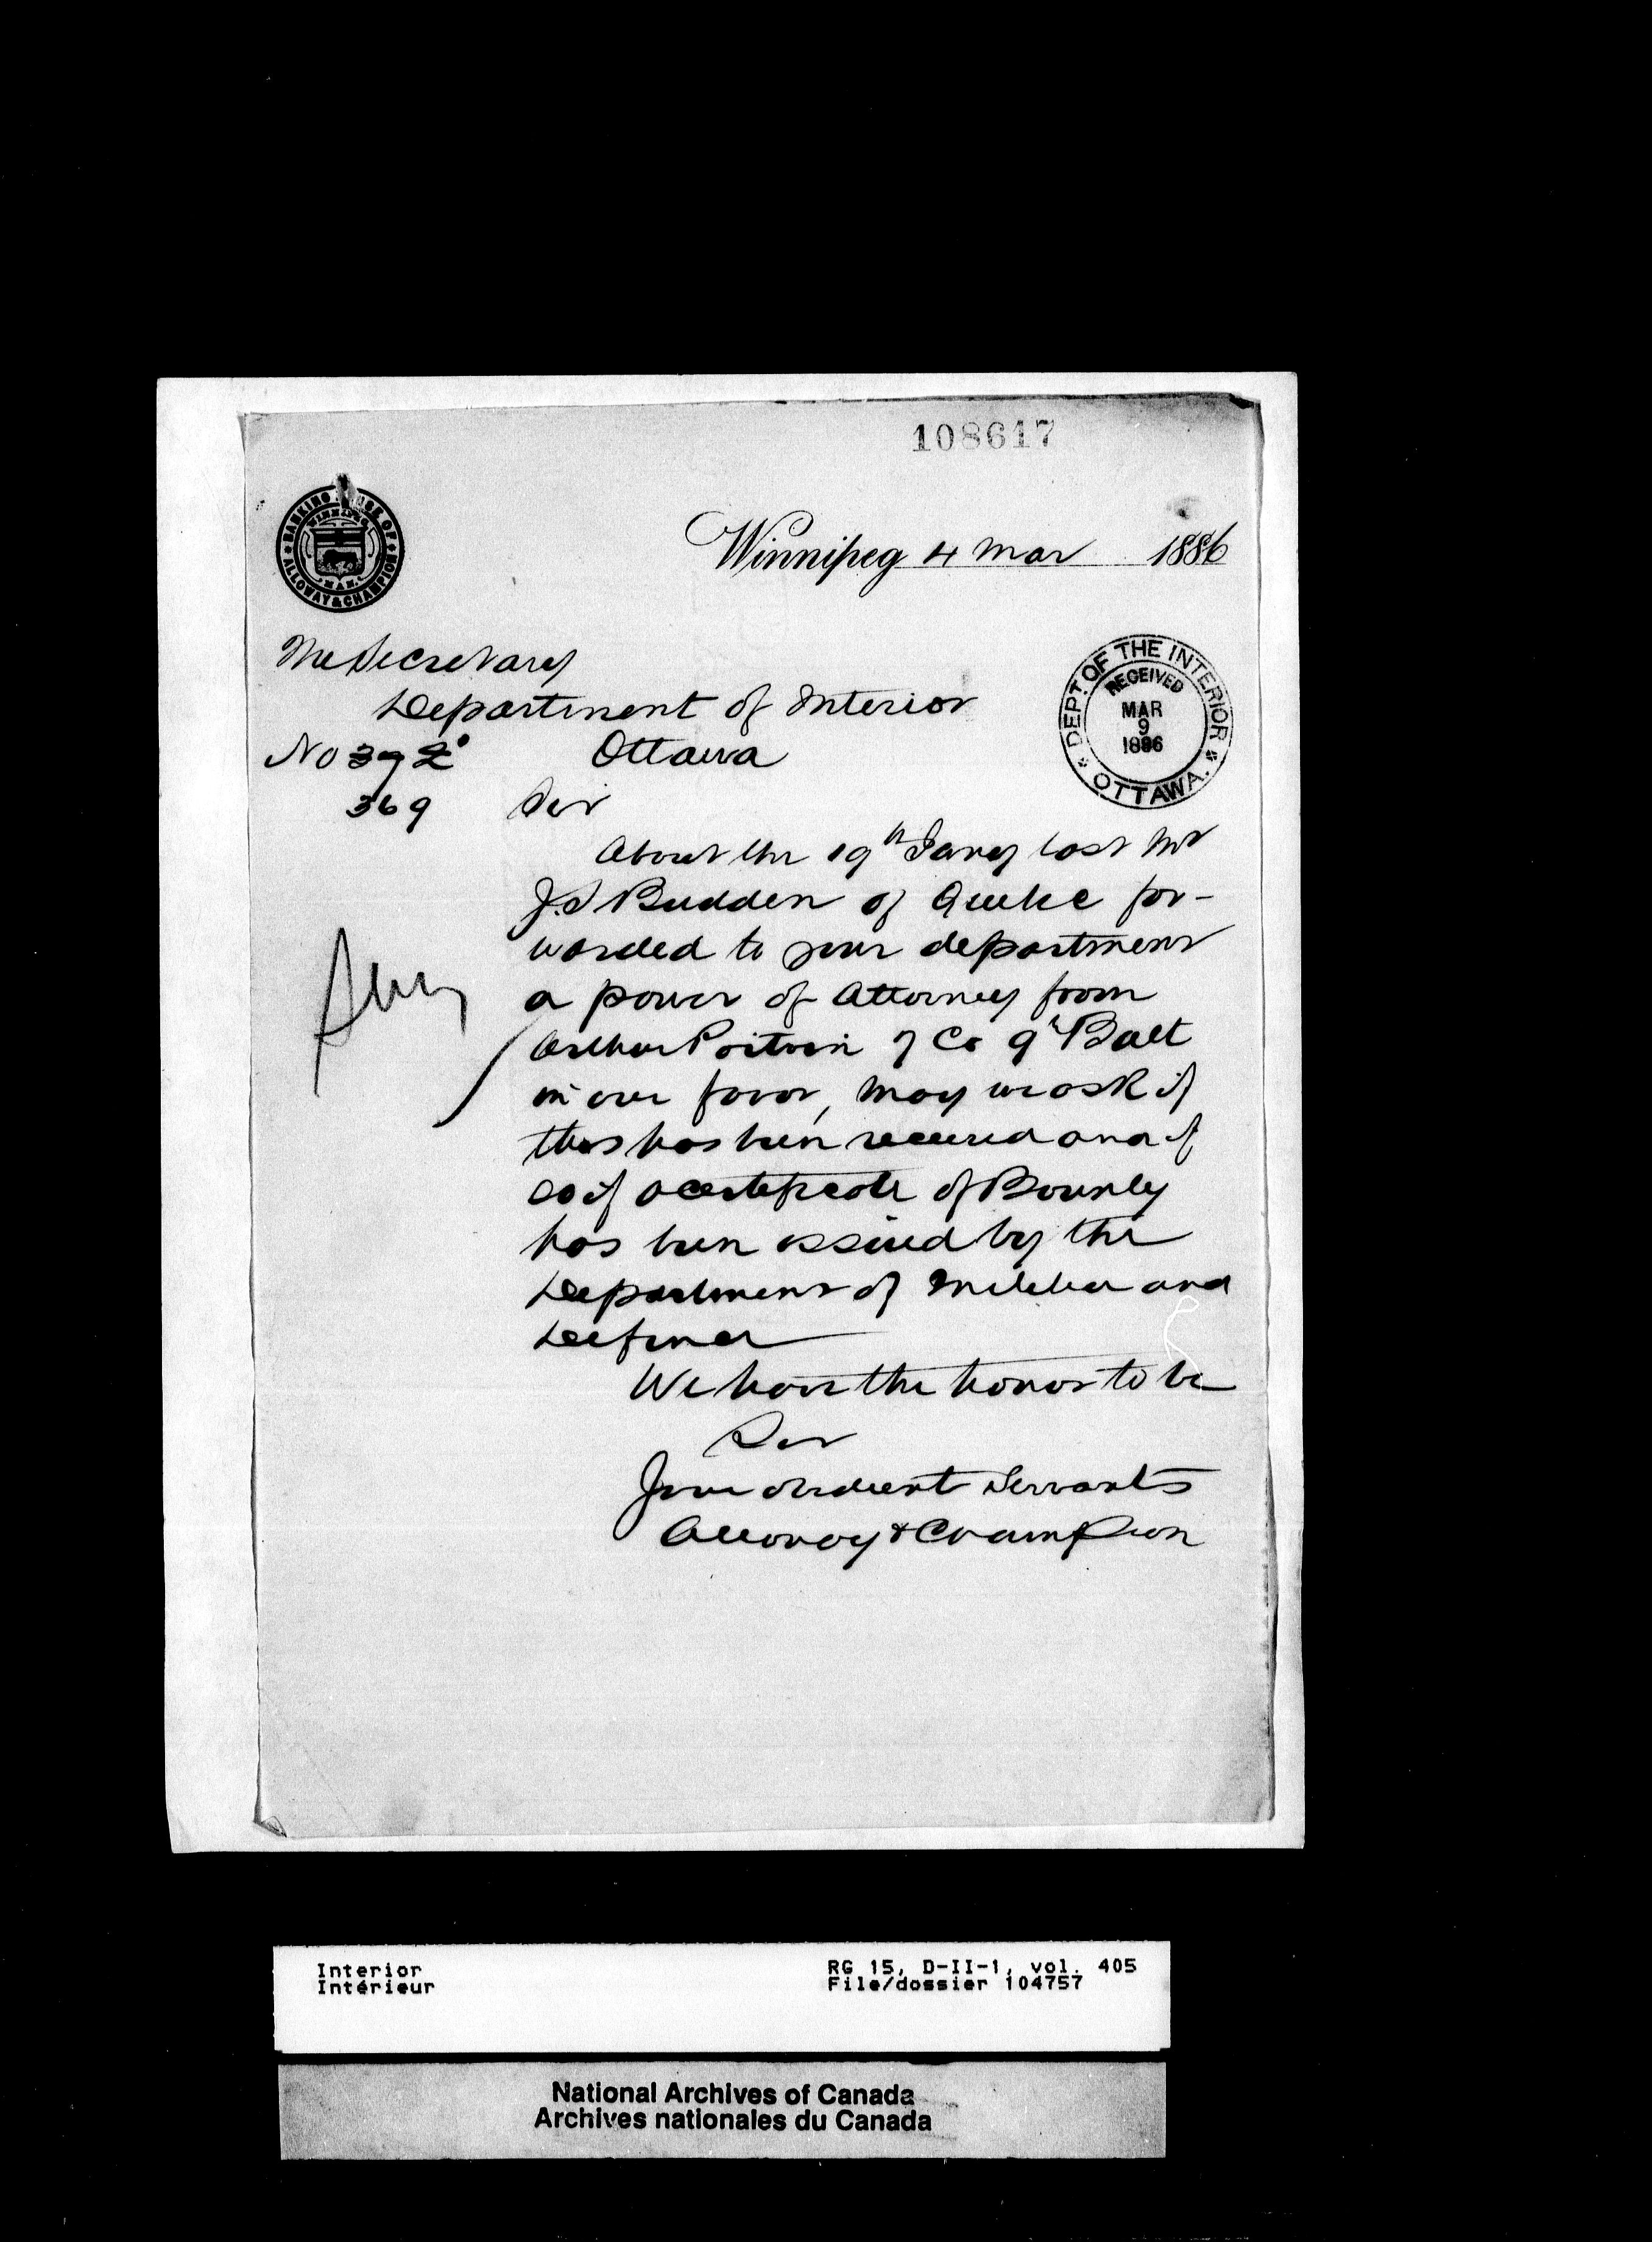 108617
BANKING HOUSE OF
ALLOWAY & CHAMPION
WINNIPEG
MAN.
Winnipeg 4 Mar 1886
The Secretary
Department of Interior
No 372
Ottawa
369
Sir
DEPT. OF THE INTERIOR
RECEIVED
MAR
9
1886
OTTAWA.
About the 19th Jany last Mr
J.S Budden of Quebc for-
warded to your department
a power of Attorney from
Arthur Poitvin 7 Co 9th Batt
in our favor, May we ask if
this has been received and if
so if a certificate of Bounty
has been issued by the
Department of Militia and
Defence
We have the honor to be
Sir
Your obedient Servants
Alloway & Champion
Interior
Intérieur
RG 15, D-II-1, vol. 405
File/dossier 104757
National Archives of Canada
Archives nationales du Canada